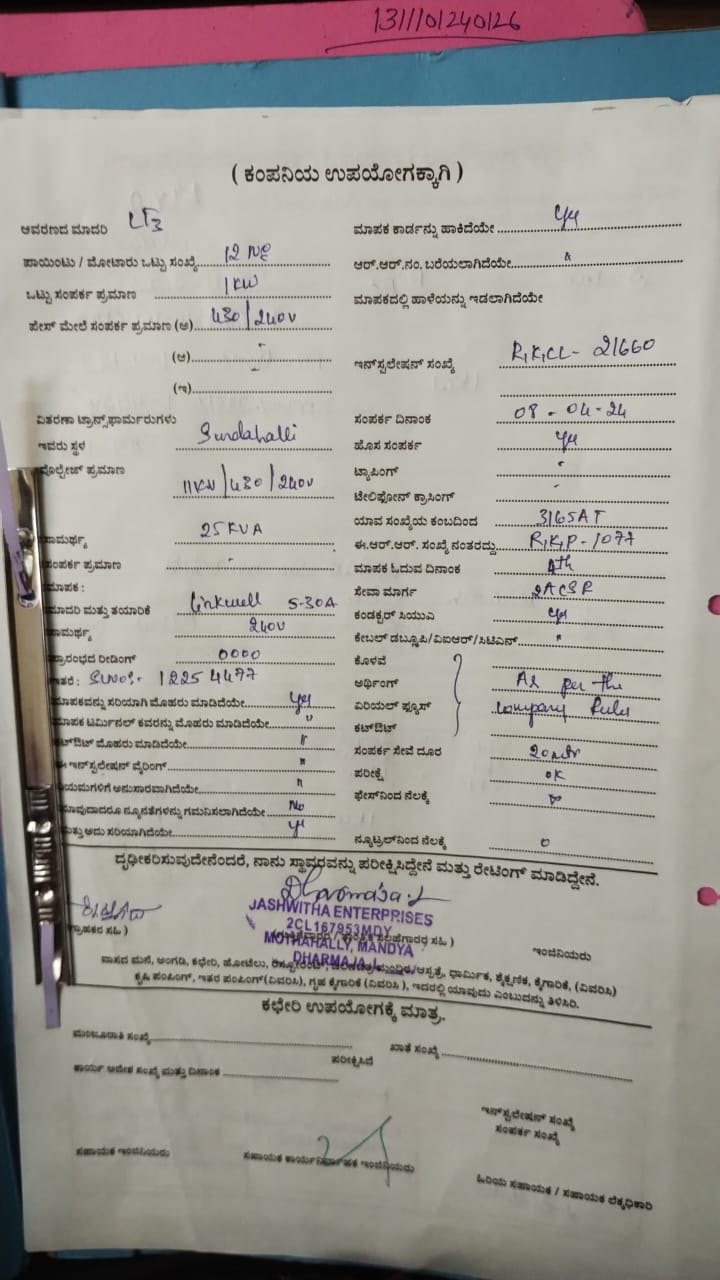 1311101240126
( ಕಂಪನಿಯ ಉಪಯೋಗಕ್ಕಾಗಿ )
ಆವರಣದ ಮಾದರಿ LT3
ಮಾಪಕ ಕಾರ್ಡನ್ನು ಹಾಕಿದೆಯೇ
ಪಾಯಿಂಟು / ಮೋಟಾರು ಒಟ್ಟು ಸಂಖ್ಯೆ 12
ಆರ್.ಆರ್.ನಂ. ಬರೆಯಲಾಗಿದೆಯೇ
ಒಟ್ಟು ಸಂಪರ್ಕ ಪ್ರಮಾಣ 1KW
ಮಾಪಕದಲ್ಲಿ ಹಾಳೆಯನ್ನು ಇಡಲಾಗಿದೆಯೇ
ಪೇಸ್ ಮೇಲೆ ಸಂಪರ್ಕ ಪ್ರಮಾಣ (ಅ) 430/240V
(ಆ)
ಇನ್‌ಸ್ಟಲೇಷನ್ ಸಂಖ್ಯೆ 21660
(ಇ)
ವಿತರಣಾ ಟ್ರಾನ್ಸ್‌ಫಾರ್ಮರುಗಳು
ಸಂಪರ್ಕ ದಿನಾಂಕ 08-04-24
ಇವರು ಸ್ಥಳ Surdahalli
ಹೊಸ ಸಂಪರ್ಕ
ವೋಲ್ಟೇಜ್ ಪ್ರಮಾಣ 11KW/430/240V
ಟ್ಯಾಪಿಂಗ್
ಟೆಲಿಫೋನ್ ಕ್ರಾಸಿಂಗ್
ಸಾಮರ್ಥ್ಯ 25KVA
ಯಾವ ಸಂಖ್ಯೆಯ ಕಂಬದಿಂದ 3165AT
ಸಂಪರ್ಕ ಪ್ರಮಾಣ
ಈ.ಆರ್.ಆರ್. ಸಂಖ್ಯೆ ನಂತರದ್ದು RKP-1077
ಮಾಪಕ :
ಮಾಪಕ ಓದುವ ದಿನಾಂಕ 4th
ಮಾದರಿ ಮತ್ತು ತಯಾರಿಕೆ Linkwell 5-30A
ಸೇವಾ ಮಾರ್ಗ 2ACSR
ಸಾಮರ್ಥ್ಯ 240V
ಕಂಡಕ್ಟರ್ ಸಿಯುಎ
ಪ್ರಾರಂಭದ ರೀಡಿಂಗ್ 0000
ಕೇಬಲ್ ಡಬ್ಲ್ಯೂಪಿ/ವಿಐಆರ್/ಸಿಟಿಎಸ್ "
ಇತರ : SLNO:- 12254477
ಕೊಳವೆ
ಮಾಪಕವನ್ನು ಸರಿಯಾಗಿ ಮೊಹರು ಮಾಡಿದೆಯೇ Yes
ಅರ್ಥಿಂಗ್ As per the
ಮಾಪಕ ಟರ್ಮಿನಲ್ ಕವರನ್ನು ಮೊಹರು ಮಾಡಿದೆಯೇ "
ಏರಿಯಲ್ ಫ್ಯೂಸ್ company Rules
ಕಟ್‌ಔಟ್ ಮೊಹರು ಮಾಡಿದೆಯೇ "
ಕಟ್‌ಔಟ್
ಈ ಇನ್‌ಸ್ಟಲೇಷನ್ ವೈರಿಂಗ್ "
ಸಂಪರ್ಕ ಸೇವೆ ದೂರ 20mtr
ನಿಯಮಗಳಿಗೆ ಅನುಸಾರವಾಗಿದೆಯೇ "
ಪರೀಕ್ಷೆ OK
ಯಾವುದಾದರೂ ನ್ಯೂನತೆಗಳನ್ನು ಗಮನಿಸಲಾಗಿದೆಯೇ No
ಫೇಸ್‌ನಿಂದ ನೆಲಕ್ಕೆ ∞
ಮತ್ತು ಅದು ಸರಿಯಾಗಿದೆಯೇ
ನ್ಯೂಟ್ರಲ್‌ನಿಂದ ನೆಲಕ್ಕೆ 0
ದೃಢೀಕರಿಸುವುದೇನೆಂದರೆ, ನಾನು ಸ್ಥಾವರವನ್ನು ಪರೀಕ್ಷಿಸಿದ್ದೇನೆ ಮತ್ತು ರೇಟಿಂಗ್ ಮಾಡಿದ್ದೇನೆ.
Dharmaja.L
JASHWITHA ENTERPRISES
2CL167953MDY
MOTHAHALLY, MANDYA
DHARMAJA.L
ಗ್ರಾಹಕರ ಸಹಿ )
ಇಂಜಿನಿಯರು
ವಾಸದ ಮನೆ, ಅಂಗಡಿ, ಕಛೇರಿ, ಹೋಟೆಲು, ಆಸ್ಪತ್ರೆ, ಧಾರ್ಮಿಕ, ಶೈಕ್ಷಣಿಕ, ಕೈಗಾರಿಕೆ, (ವಿವರಿಸಿ)
ಕೃಷಿ ಪಂಪಿಂಗ್, ಇತರ ಪಂಪಿಂಗ್(ವಿವರಿಸಿ), ಗೃಹ ಕೈಗಾರಿಕೆ (ವಿವರಿಸಿ ), ಇದರಲ್ಲಿ ಯಾವುದು ಎಂಬುದನ್ನು ತಿಳಿಸಿರಿ.
ಕಛೇರಿ ಉಪಯೋಗಕ್ಕೆ ಮಾತ್ರ.
ಮಂಜೂರಾತಿ ಸಂಖ್ಯೆ
ಖಾತೆ ಸಂಖ್ಯೆ
ಪರೀಕ್ಷಿಸಿದೆ
ಕಾರ್ಯ ಆದೇಶ ಸಂಖ್ಯೆ ಮತ್ತು ದಿನಾಂಕ
ಇನ್‌ಸ್ಟಲೇಷನ್ ಸಂಖ್ಯೆ
ಸಂಪರ್ಕ ಸಂಖ್ಯೆ
ಸಹಾಯಕ ಇಂಜಿನಿಯರು
ಸಹಾಯಕ ಕಾರ್ಯನಿರ್ವಾಹಕ ಇಂಜಿನಿಯರು
ಹಿರಿಯ ಸಹಾಯಕ / ಸಹಾಯಕ ಲೆಕ್ಕಾಧಿಕಾರಿ